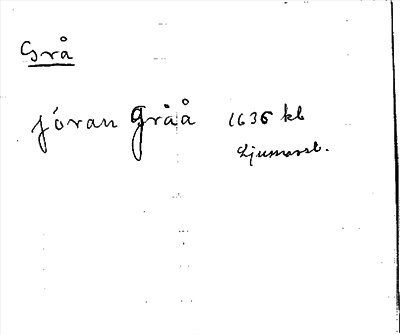 Grå
jöran gråå 1636 kb
Ljusnarsb.